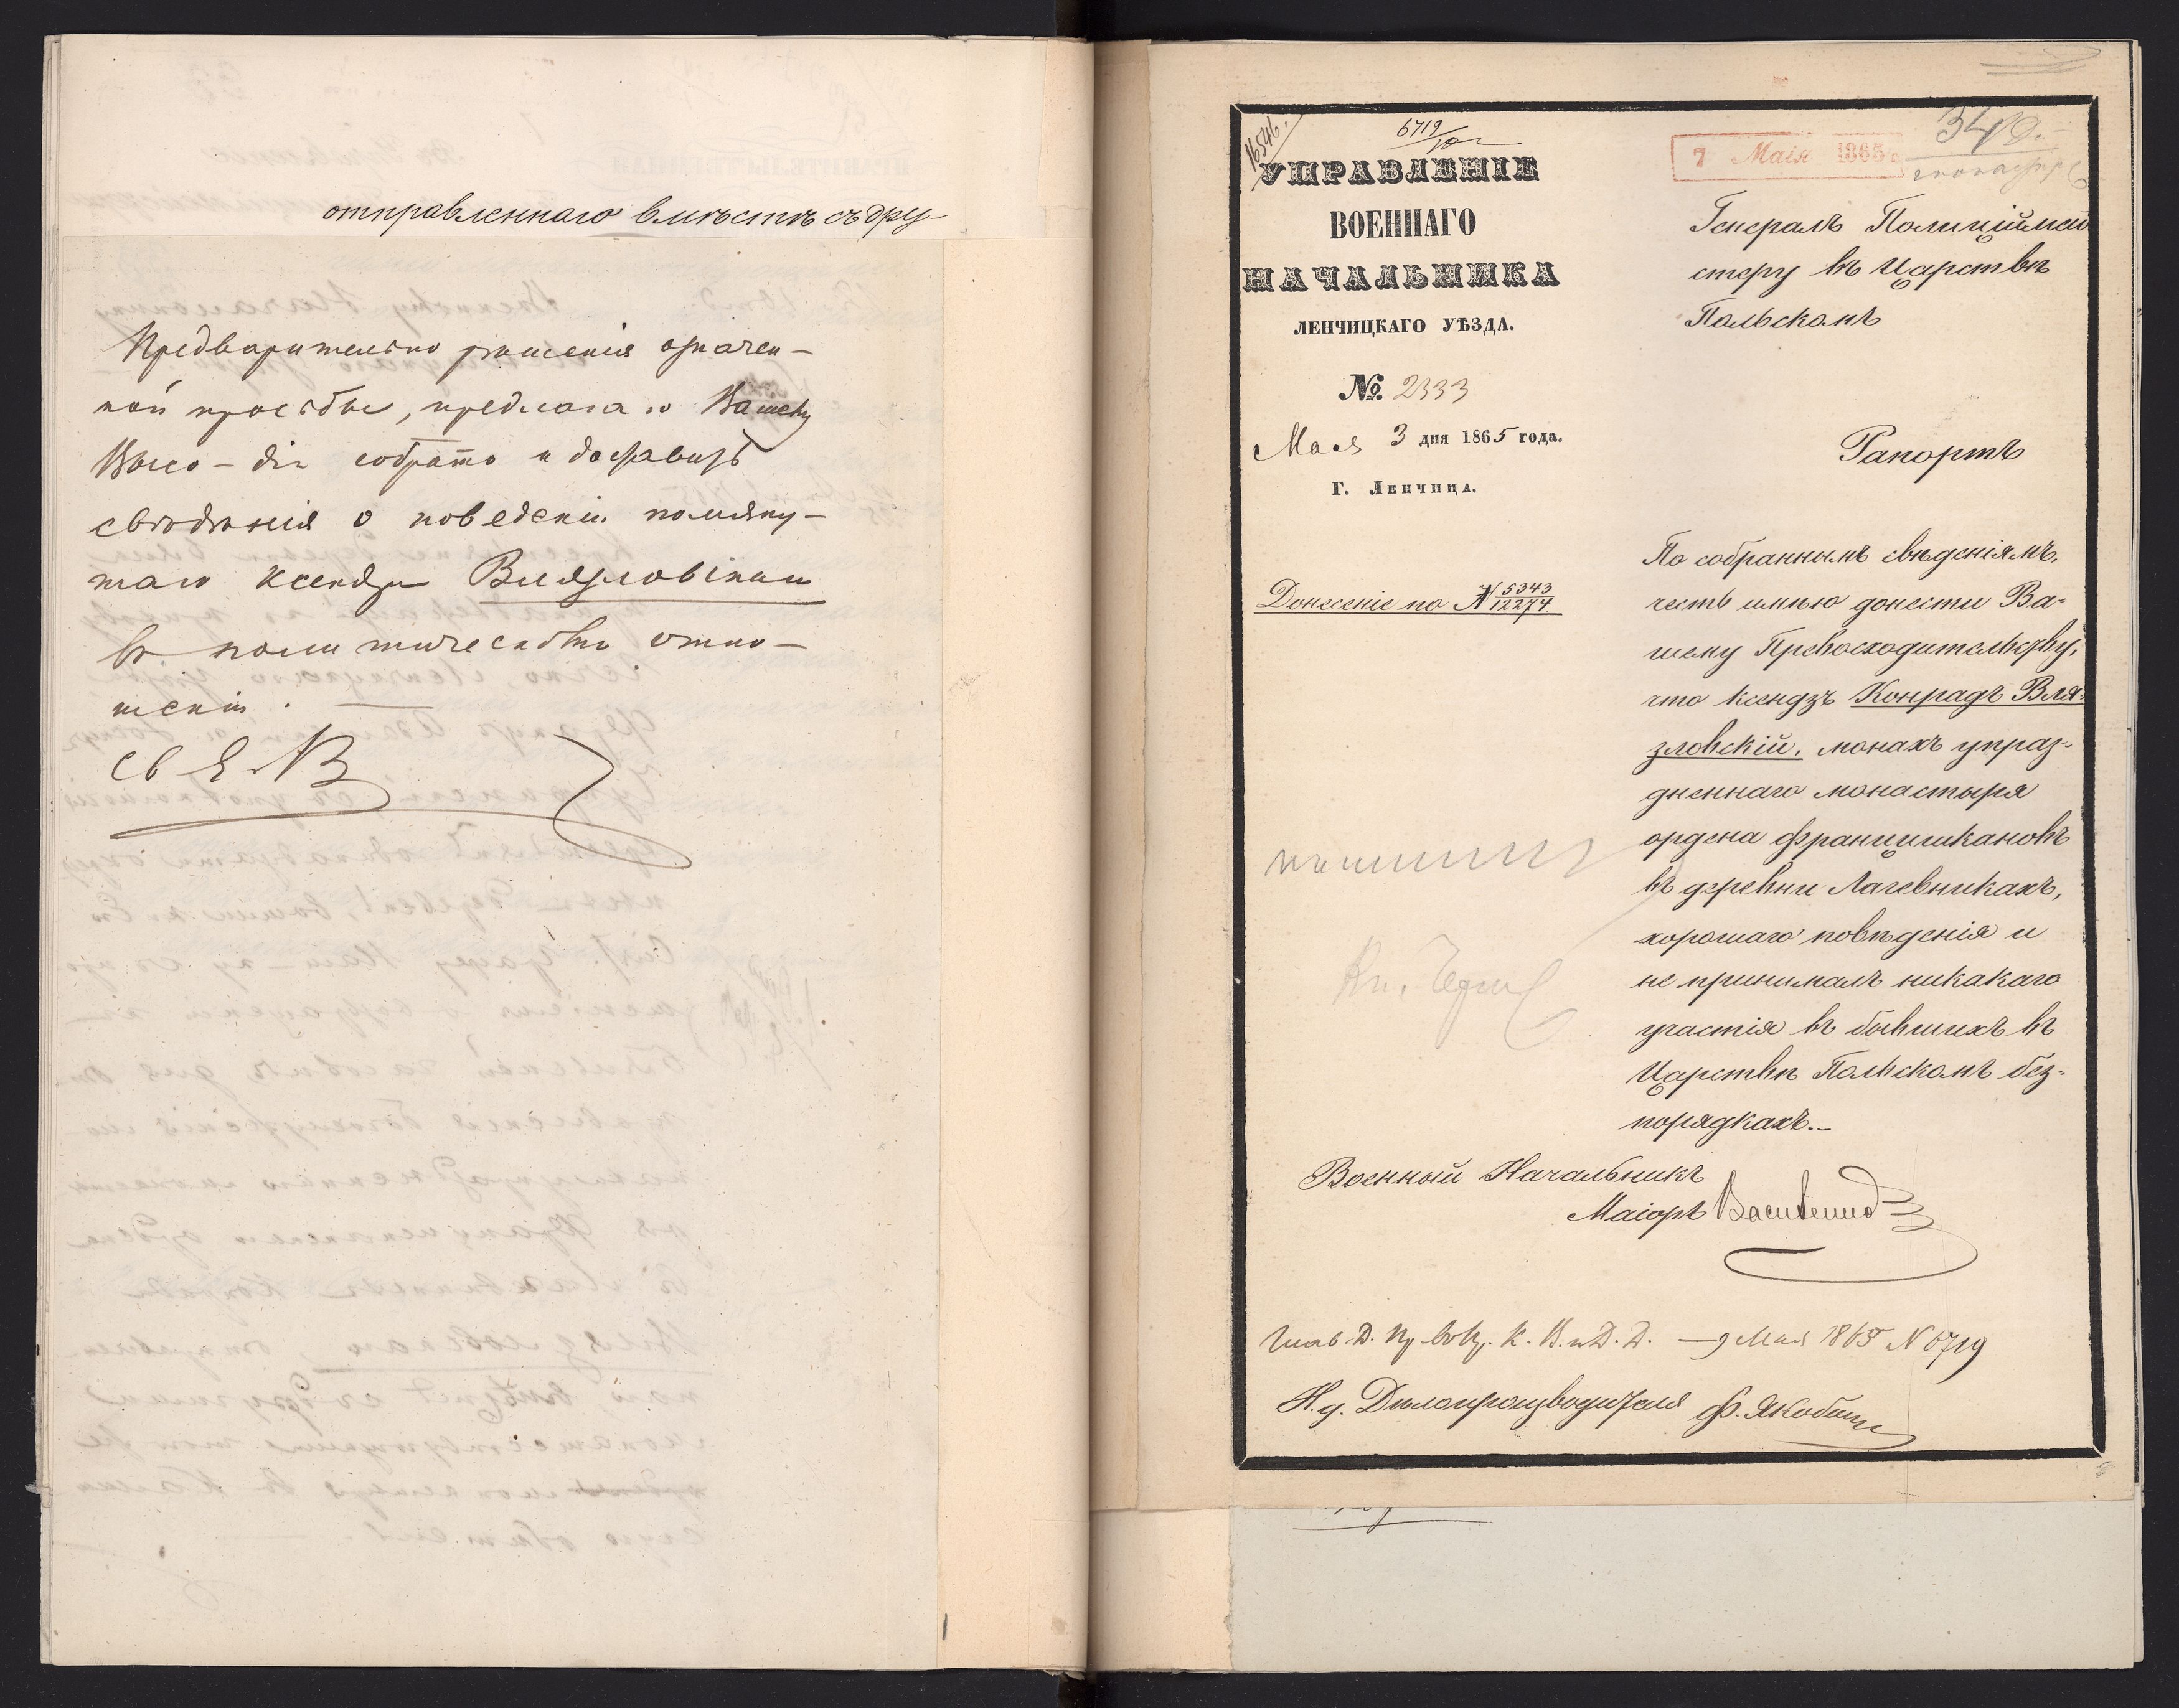 отправленнаго вместѣ съ дру-
Предварительно рѣшенія означен-
ной просьбы, предлагаю Вашему
Высо-дію собрать и доставить
свѣдѣнія о поведеніи помяну-
таго ксендза Влязловскаго
въ политическомъ отно-
шеніи.
16546.
6719
УПРАВЛЕНІЕ
ВОЕННАГО
НАЧАЛЬНИКА
ЛЕНЧИЦКАГО УѢЗДА.
№ 2333
Мая 3 дня 1865 года.
Г. Ленчица.
Донесеніе по № 5343/12274
7 Маія 1865 г.
Генералъ Полиціймей
стеру въ Царствѣ
Польскомъ
Рапортъ
По собраннымъ свѣденіямъ,
честь имѣю донести Ва-
шему Превосходительству,
что ксендзъ Конрадъ Вля-
зловскій, монахъ упраз-
дненнаго монастыря
ордена францишкановъ
въ деревни Лагевникахъ,
хорошаго повѣденія и
не принималъ никакаго
участія въ бывшихъ въ
Царствѣ Польскомъ без-
порядкахъ.-
Военный Начальникъ
Маіоръ
9 Мая 1865 N 6719
И. д. Дѣлопроизводителя Ф. Якобсон